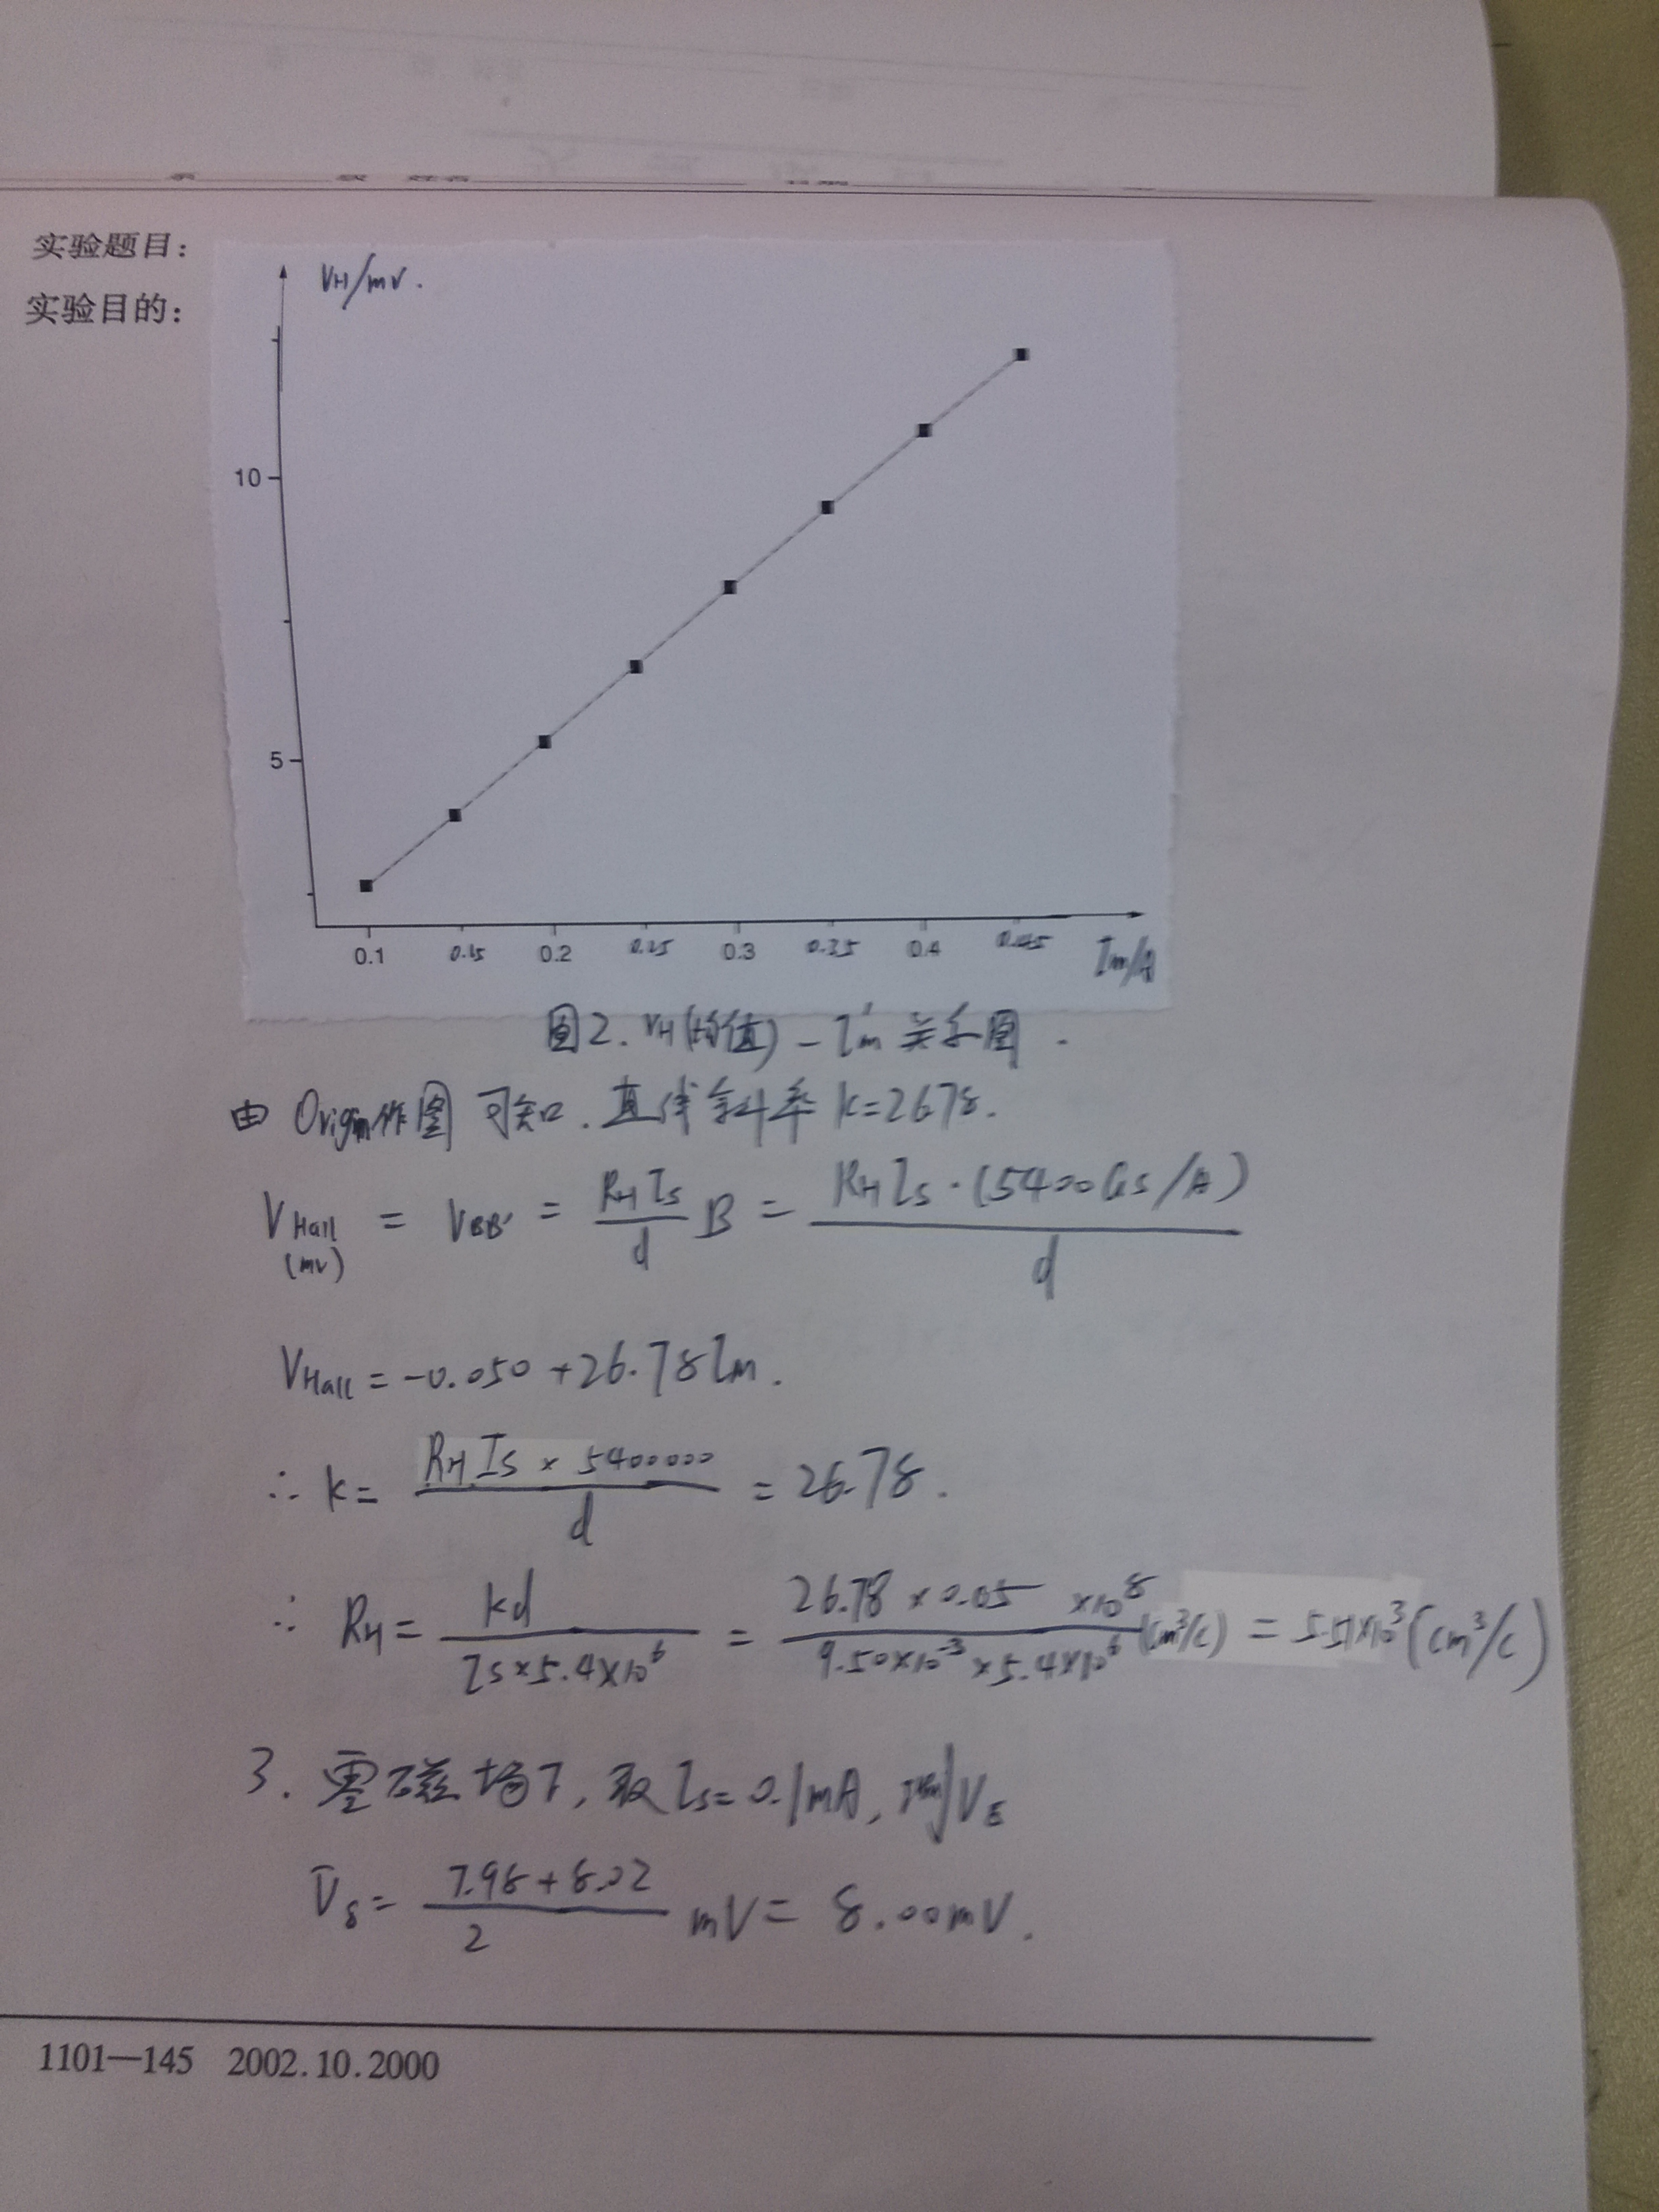 实验题目：
实验目的：
VH/mV.
10
5
0.1 0.15 0.2 0.25 0.3 0.35 0.4 0.45 Im/A
图2. VH(均值) - Im 关系图.
由 Origin作图 可知. 直线斜率 k=26.78.
VHall = VBB' = RH Is / d B = RH Is · (5400 Gs/A) / d
(mv)
VHall = -0.050 + 26.78 Im.
∴ k = RH Is × 5400000 / d = 26.78.
∴ RH = kd / Is×5.4×10⁶ = 26.78 × 0.05 ×10⁸ / 9.50×10⁻³ × 5.4×10⁶ (cm³/C) = 5.51×10³ (cm³/C)
3. 零磁场下, 取 Is = 0.1mA,
V̄δ = 7.98 + 8.02 / 2 mV = 8.00mV.
1101—145 2002.10.2000